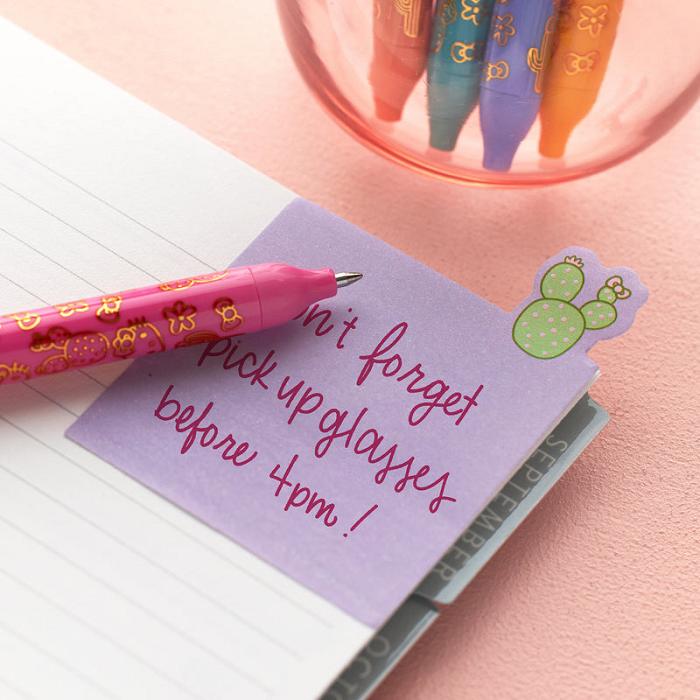 on't forget
pick up glasses
before 4pm!
SEPTEMBER
OCTO